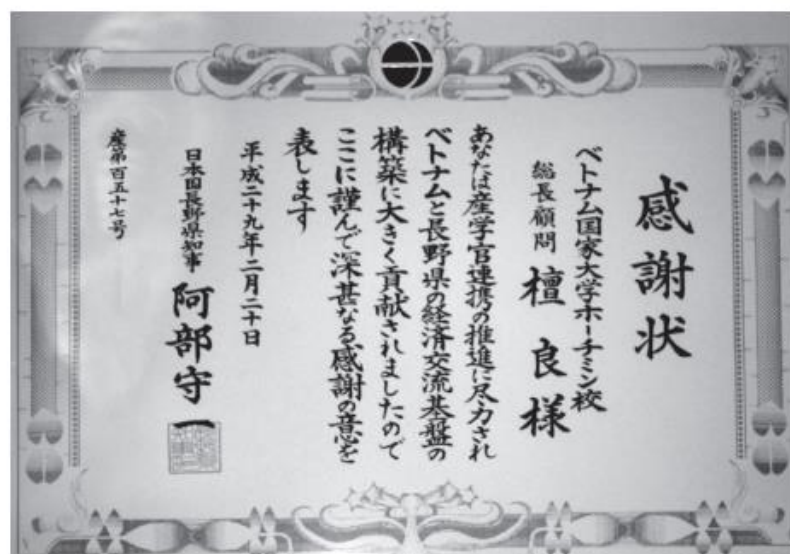 感謝状
ベトナム国家大学ホーチミン校
総長顧問 檀良様
あなたは産学官連携の推進に尽力され
ベトナムと長野県の経済交流基盤の
構築に大きく貢献されましたので
ここに謹んで深甚なる感謝の意を
表します
平成二十九年二月二十日
日本国長野県知事 阿部守一
産第百五十七号